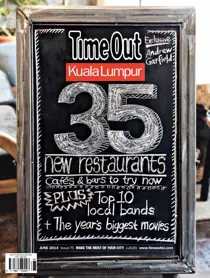 Exclusive
Andrew
Garfield
Time Out
Kuala Lumpur
35
new restaurants
Cafés & bars to try now
PLUS Top 10
local bands
+ The year's biggest movies
JUNE 2014 Issue 75 MAKE THE MOST OF YOUR CITY www.timeoutkl.com